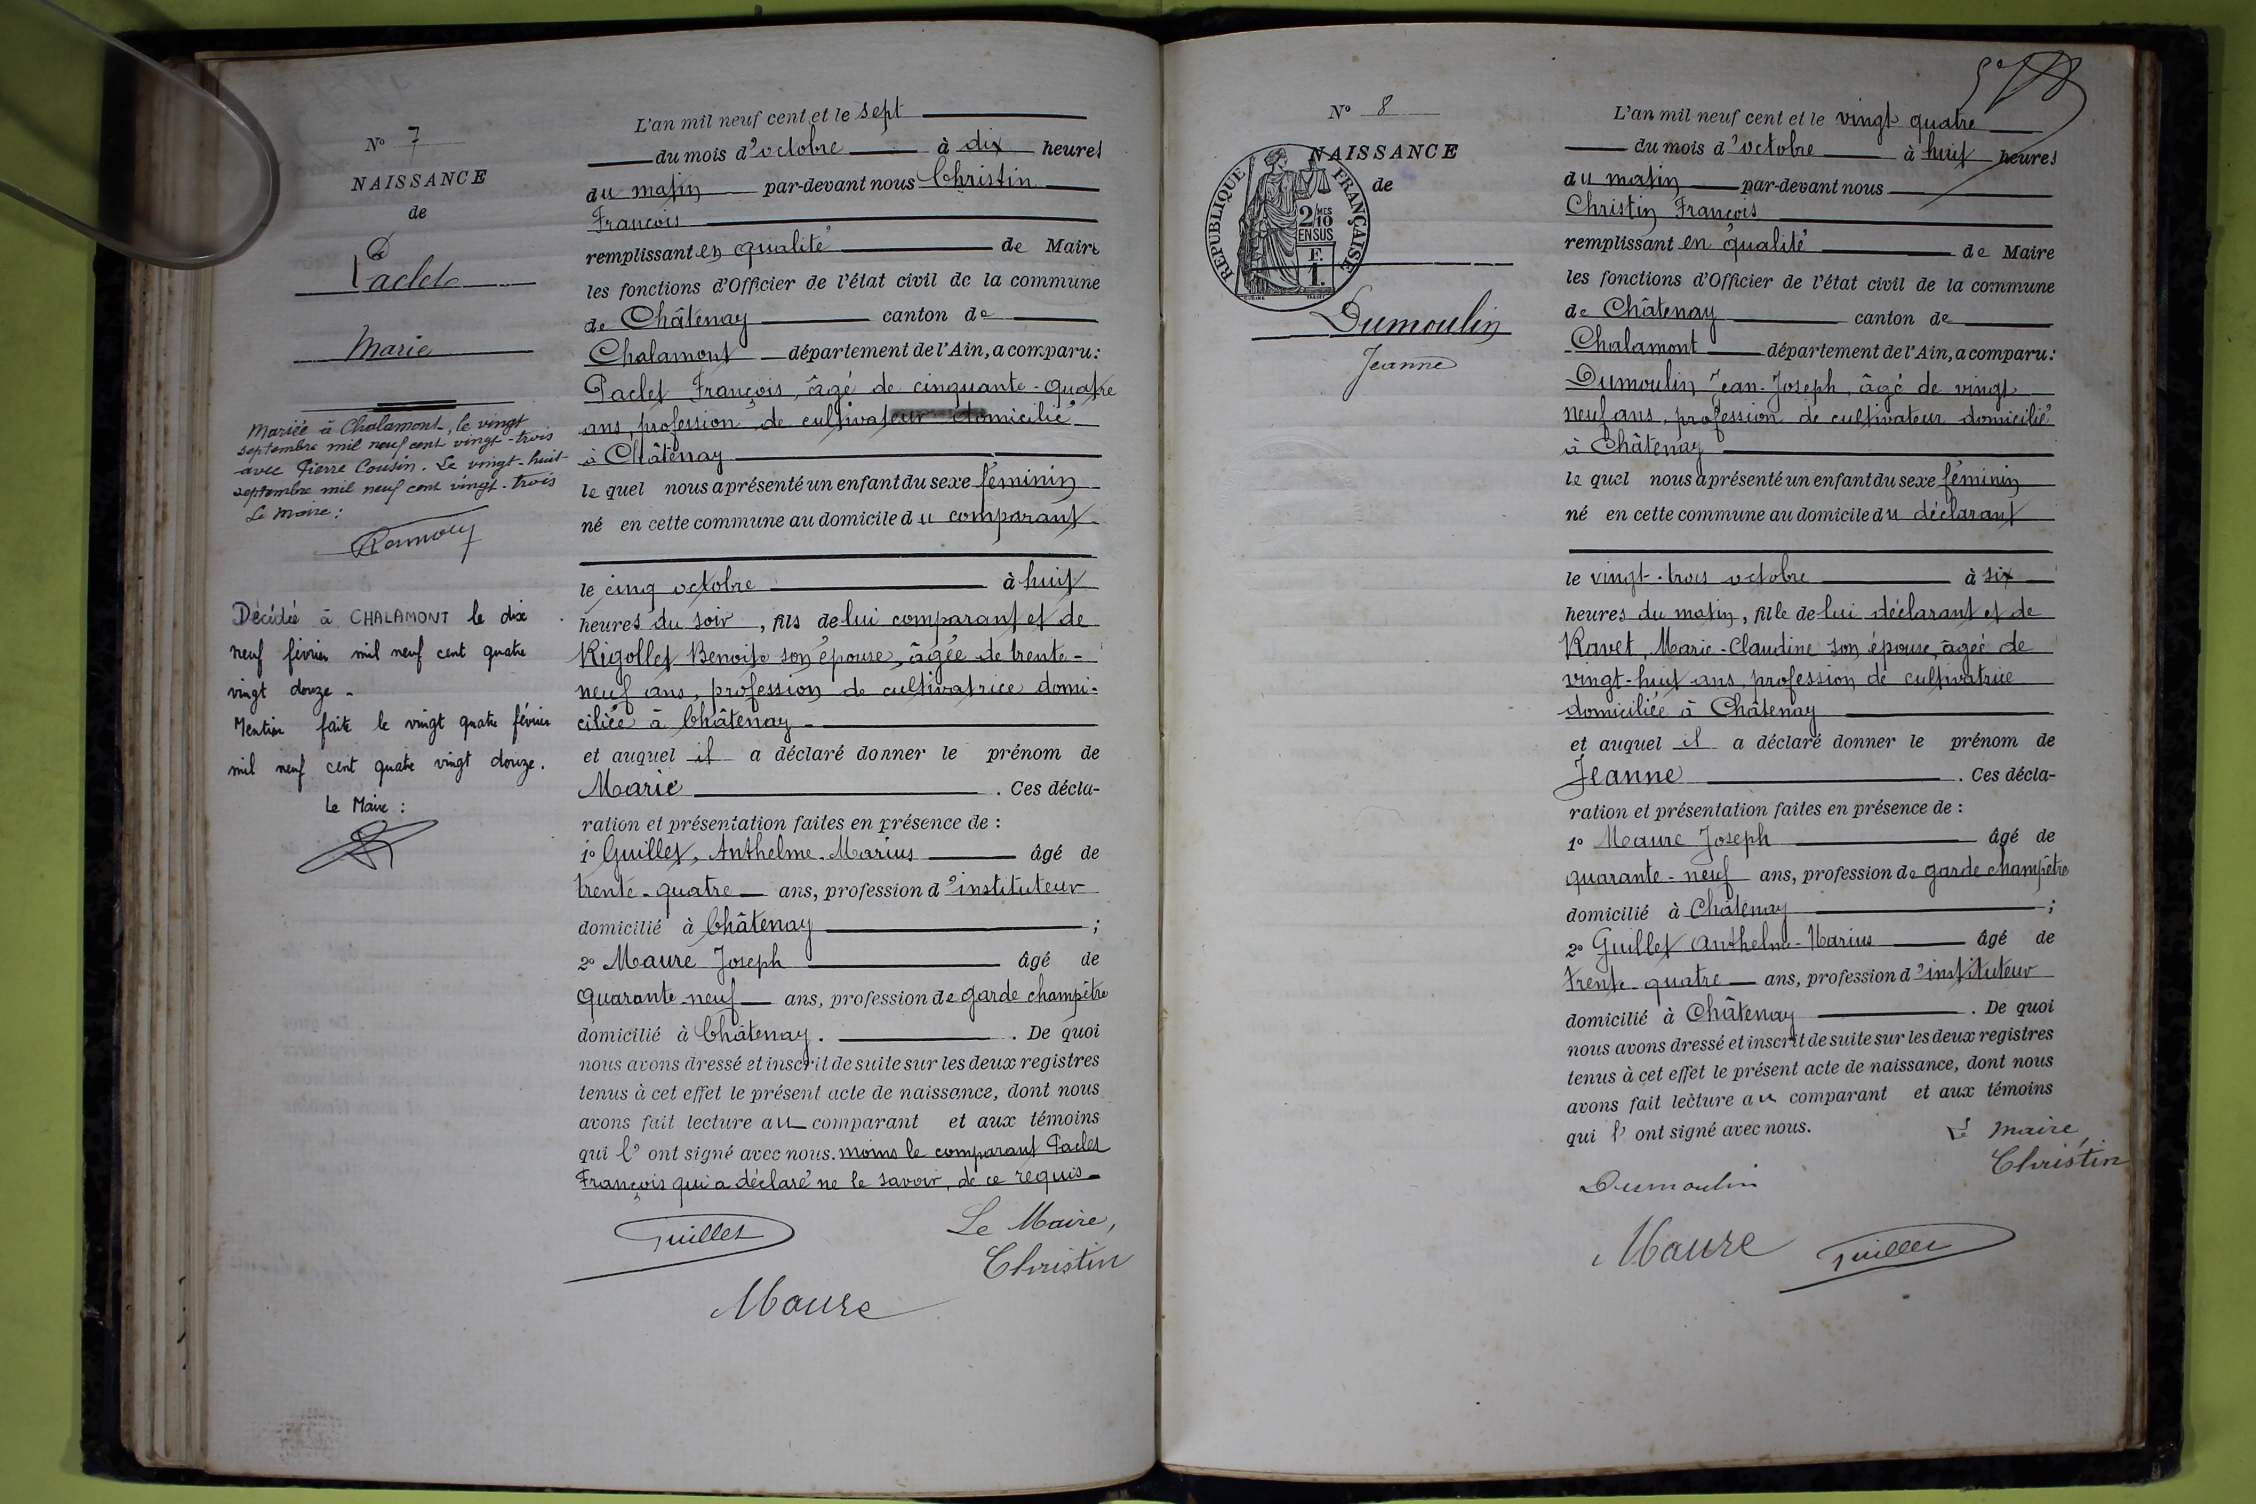 N° 7
NAISSANCE
de
Paclet
Marie
Mariée à Chalamont, le vingt
septembre mil neuf cent vingt-trois
avec Pierre Cousin. Le vingt-huit
septembre mil neuf cent vingt-trois
Le Maire :
Décédée à CHALAMONT le dix
neuf février mil neuf cent quatre
vingt douze -
Mention faite le vingt quatre février
mil neuf cent quatre vingt douze.
Le Maire :
L'an mil neuf cent et le sept
du mois d'octobre à dix heures
du matin par-devant nous Christin
François
remplissant en qualité de Maire
les fonctions d'Officier de l'état civil de la commune
de Châtenay canton de
Chalamont département de l'Ain, a comparu :
Paclet François, âgé de cinquante-quatre
ans, profession de cultivateur domicilié
à Châtenay
le quel nous a présenté un enfant du sexe féminin
né en cette commune au domicile du comparant
le cinq octobre à huit
heures du soir, fils de lui comparant et de
Rigollet Benoite son épouse, âgée de trente-
neuf ans, profession de cultivatrice domi-
ciliée à Châtenay -
et auquel il a déclaré donner le prénom de
Marie. Ces décla-
ration et présentation faites en présence de :
1° Guillet, Anthelme-Marius âgé de
trente-quatre ans, profession d'instituteur
domicilié à Châtenay ;
2° Maure Joseph âgé de
quarante-neuf ans, profession de garde champêtre
domicilié à Châtenay. . De quoi
nous avons dressé et inscrit de suite sur les deux registres
tenus à cet effet le présent acte de naissance, dont nous
avons fait lecture au comparant et aux témoins
qui l'ont signé avec nous. moins le comparant Paclet
François qui a déclaré ne le savoir, de ce requis -
Guillet
Le Maire,
Christin
Maure
N° 8
NAISSANCE
de
REPUBLIQUE FRANÇAISE
2/10 MES
EN SUS
F.
1.
Dumoulin
Jeanne
L'an mil neuf cent et le vingt quatre
du mois d'octobre à huit heures
du matin par-devant nous
Christin François
remplissant en qualité de Maire
les fonctions d'Officier de l'état civil de la commune
de Châtenay canton de
Chalamont département de l'Ain, a comparu :
Dumoulin Jean-Joseph, âgé de vingt
neuf ans, profession de cultivateur domicilié
à Châtenay
le quel nous a présenté un enfant du sexe féminin
né en cette commune au domicile du déclarant
le vingt-trois octobre à six
heures du matin, fille de lui déclarant et de
Ravet, Marie-Claudine son épouse, âgée de
vingt-huit ans, profession de cultivatrice
domiciliée à Châtenay
et auquel il a déclaré donner le prénom de
Jeanne. Ces décla-
ration et présentation faites en présence de :
1° Maure Joseph âgé de
quarante-neuf ans, profession de garde champêtre
domicilié à Châtenay ;
2° Guillet Anthelme-Marius âgé de
trente-quatre ans, profession d'instituteur
domicilié à Châtenay. De quoi
nous avons dressé et inscrit de suite sur les deux registres
tenus à cet effet le présent acte de naissance, dont nous
avons fait lecture au comparant et aux témoins
qui l'ont signé avec nous.
Le maire
Christin
Dumoulin
Maure
Guillet